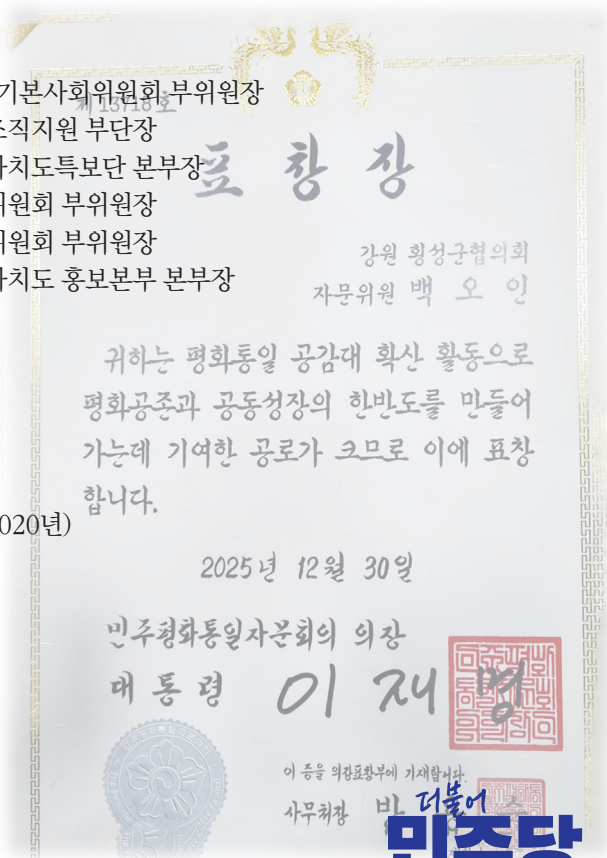 기본사회위원회 부위원장
제 13718 호
조직지원 부단장
자치도특보단 본부장
위원회 부위원장
위원회 부위원장
자치도 홍보본부 본부장
표 창 장
강원 횡성군협의회
자문위원 백 오 인
귀하는 평화통일 공감대 확산 활동으로
평화공존과 공동성장의 한반도를 만들어
가는데 기여한 공로가 크므로 이에 표창
합니다.
020년)
2025년 12월 30일
민주평화통일자문회의 의장
대 통 령 이 재 명
이 증을 의장표창부에 기재합니다.
사무처장
더불어
민주당